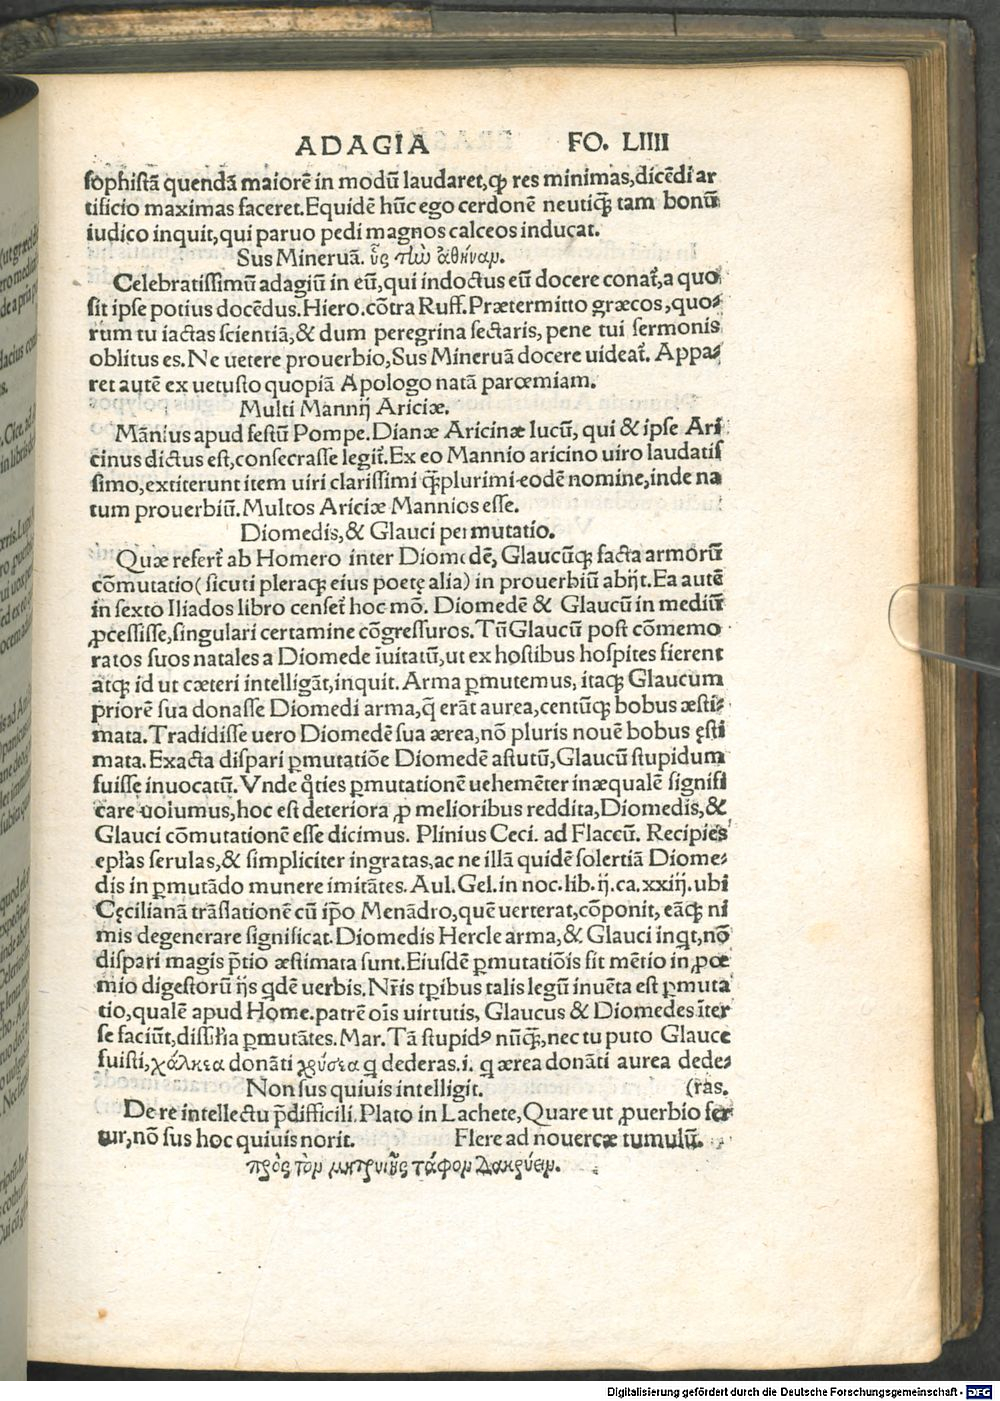 ADAGIA FO. LIIII
sophistã quendã maiorẽ in modũ laudaret, ꝙ res minimas, dicẽdi ar
tificio maximas faceret. Equidẽ hũc ego cerdonẽ neutiqꝫ tam bonũ
iudico inquit, qui paruo pedi magnos calceos inducat.
Sus Mineruã. ὗς τὴν ἀθήναν.
Celebratissimũ adagiũ in eũ, qui indoctus eũ docere conat᷒, a quo
sit ipse potius docẽdus. Hiero. cõtra Ruff. Prætermitto græcos, quo⸗
rum tu iactas scientiã, & dum peregrina sectaris, pene tui sermonis
oblitus es. Ne uetere prouerbio, Sus Mineruã docere uideat᷒. Appa⸗
ret autẽ ex uetusto quopiã Apologo natã parœmiam.
Multi Mannij Ariciæ.
Mãnius apud festũ Pompe. Dianæ Aricinæ lucũ, qui & ipse Ari
cinus dictus est, consecrasse legit᷒. Ex eo Mannio aricino uiro laudatis
simo, extiterunt item uiri clarissimi q̃ꝫplurimi eodẽ nomine, inde na
tum prouerbiũ. Multos Ariciæ Mannios esse.
Diomedis, & Glauci permutatio.
Quæ refert᷒ ab Homero inter Diomedẽ, Glaucũqꝫ facta armorũ
cõmutatio (sicuti pleraqꝫ eius poetę alia) in prouerbiũ abijt. Ea autẽ
in sexto Iliados libro censet᷒ hoc mõ. Diomedẽ & Glaucũ in mediũ
ꝓcessisse, singulari certamine cõgressuros. Tũ Glaucũ post cõmemo
ratos suos natales a Diomede ĩuitatũ, ut ex hostibus hospites fierent
atqꝫ id ut cæteri intelligãt, inquit. Arma ꝑmutemus, itaqꝫ Glaucum
priorẽ sua donasse Diomedi arma, q̃ erãt aurea, centũqꝫ bobus æsti⸗
mata. Tradidisse uero Diomedẽ sua ærea, nõ pluris nouẽ bobus ęsti
mata. Exacta dispari ꝑmutatiõe Diomedẽ astutũ, Glaucũ stupidum
fuisse inuocatũ. Vnde q̊ties ꝑmutationẽ uehemẽter inæqualẽ signifi
care uolumus, hoc est deteriora ꝓ melioribus reddita, Diomedis, &
Glauci cõmutationẽ esse dicimus. Plinius Ceci. ad Flaccũ. Recipies
epl̃as serulas, & simpliciter ingratas, ac ne illã quidẽ solertiã Diome⸗
dis in ꝑmutãdo munere imitãtes. Aul. Gel. in noc. lib. ij. ca. xxiij. ubi
Cęcilianã trãslationẽ cũ ip̃o Menãdro, quẽ uerterat, cõponit, eãqꝫ ni
mis degenerare significat. Diomedis Hercle arma, & Glauci inq̇t, nõ
dispari magis p̃tio æstimata sunt. Eiusdẽ ꝑmutatiõis fit mẽtio in ꝓœ
mio digestorũ ijs q̇dẽ uerbis. Nr̃is tp̃ibus talis legũ inuẽta est ꝑmuta
tio, qualẽ apud Home. patrẽ oĩs uirtutis, Glaucus & Diomedes ĩter
se faciũt, dissil̃ia ꝑmutãtes. Mar. Tã stupidꝰ nũqꝫ, nec tu puto Glauce
fuisti, χάλκεα donãti χρύσεα q dederas. i. q ærea donãti aurea dede⸗
Non sus quiuis intelligit. (ras.
De re intellectu p̃difficili. Plato in Lachete, Quare ut ꝓuerbio fer
tur, nõ sus hoc quiuis norit. Flere ad nouercæ tumulũ.
πρὸς τὸν μητρυιῆς τάφον δακρύειν.
Digitalisierung gefördert durch die Deutsche Forschungsgemeinschaft - DFG